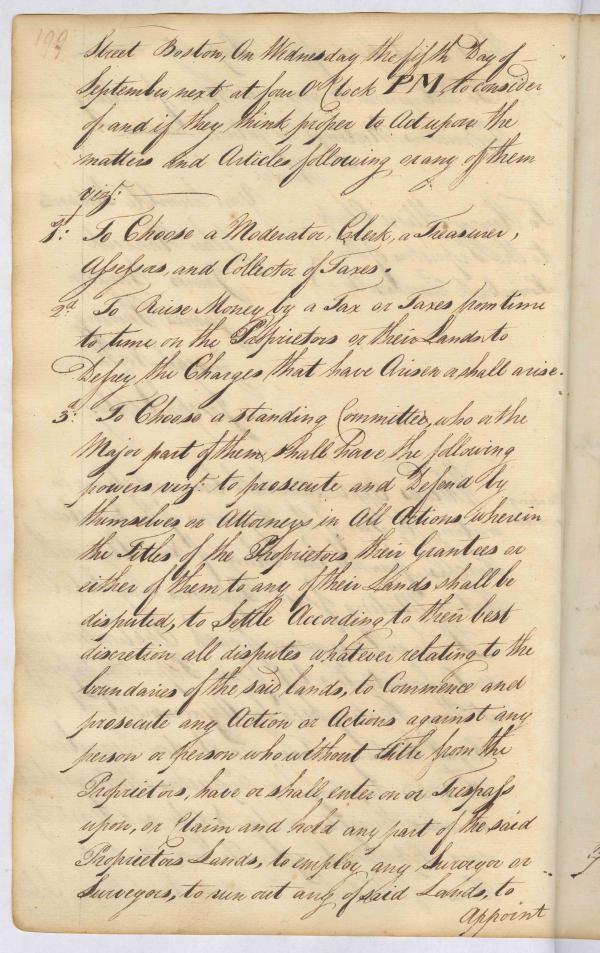 199
Street Boston, On Wednesday the fifth Day of
September next at four O'Clock PM, to consider
of and if they think proper to Act upon the
matters and Articles following or any of them
vizt:
1st: To Choose a Moderator, Clerk, a Treasurer,
Assessors, and Collector of Taxes.
2d To Raise Money by a Tax or Taxes from time
to time on the Proprietors or their Lands to
Defrey the Charges that have Arisen or shall arise.
3d: To Choose a standing Committee, who or the
Major part of them shall have the following
powers vizt: to prosecute and Defend by
themselves or Attorneys in All Actions wherein
the Titles of the Proprietors their Grantees or
either of them to any of their Lands shall be
disputed, to Settle According to their best
discretion all disputes whatever relating to the
boundaries of the said lands, to Commence and
prosecute any Action or Actions against any
person or person who without Title from the
Proprietors, have or shall enter on or Trespass
upon, or Claim and hold any part of the said
Proprietors Lands, to employ any Surveyor or
Surveyors, to run out any of said Lands, to
Appoint